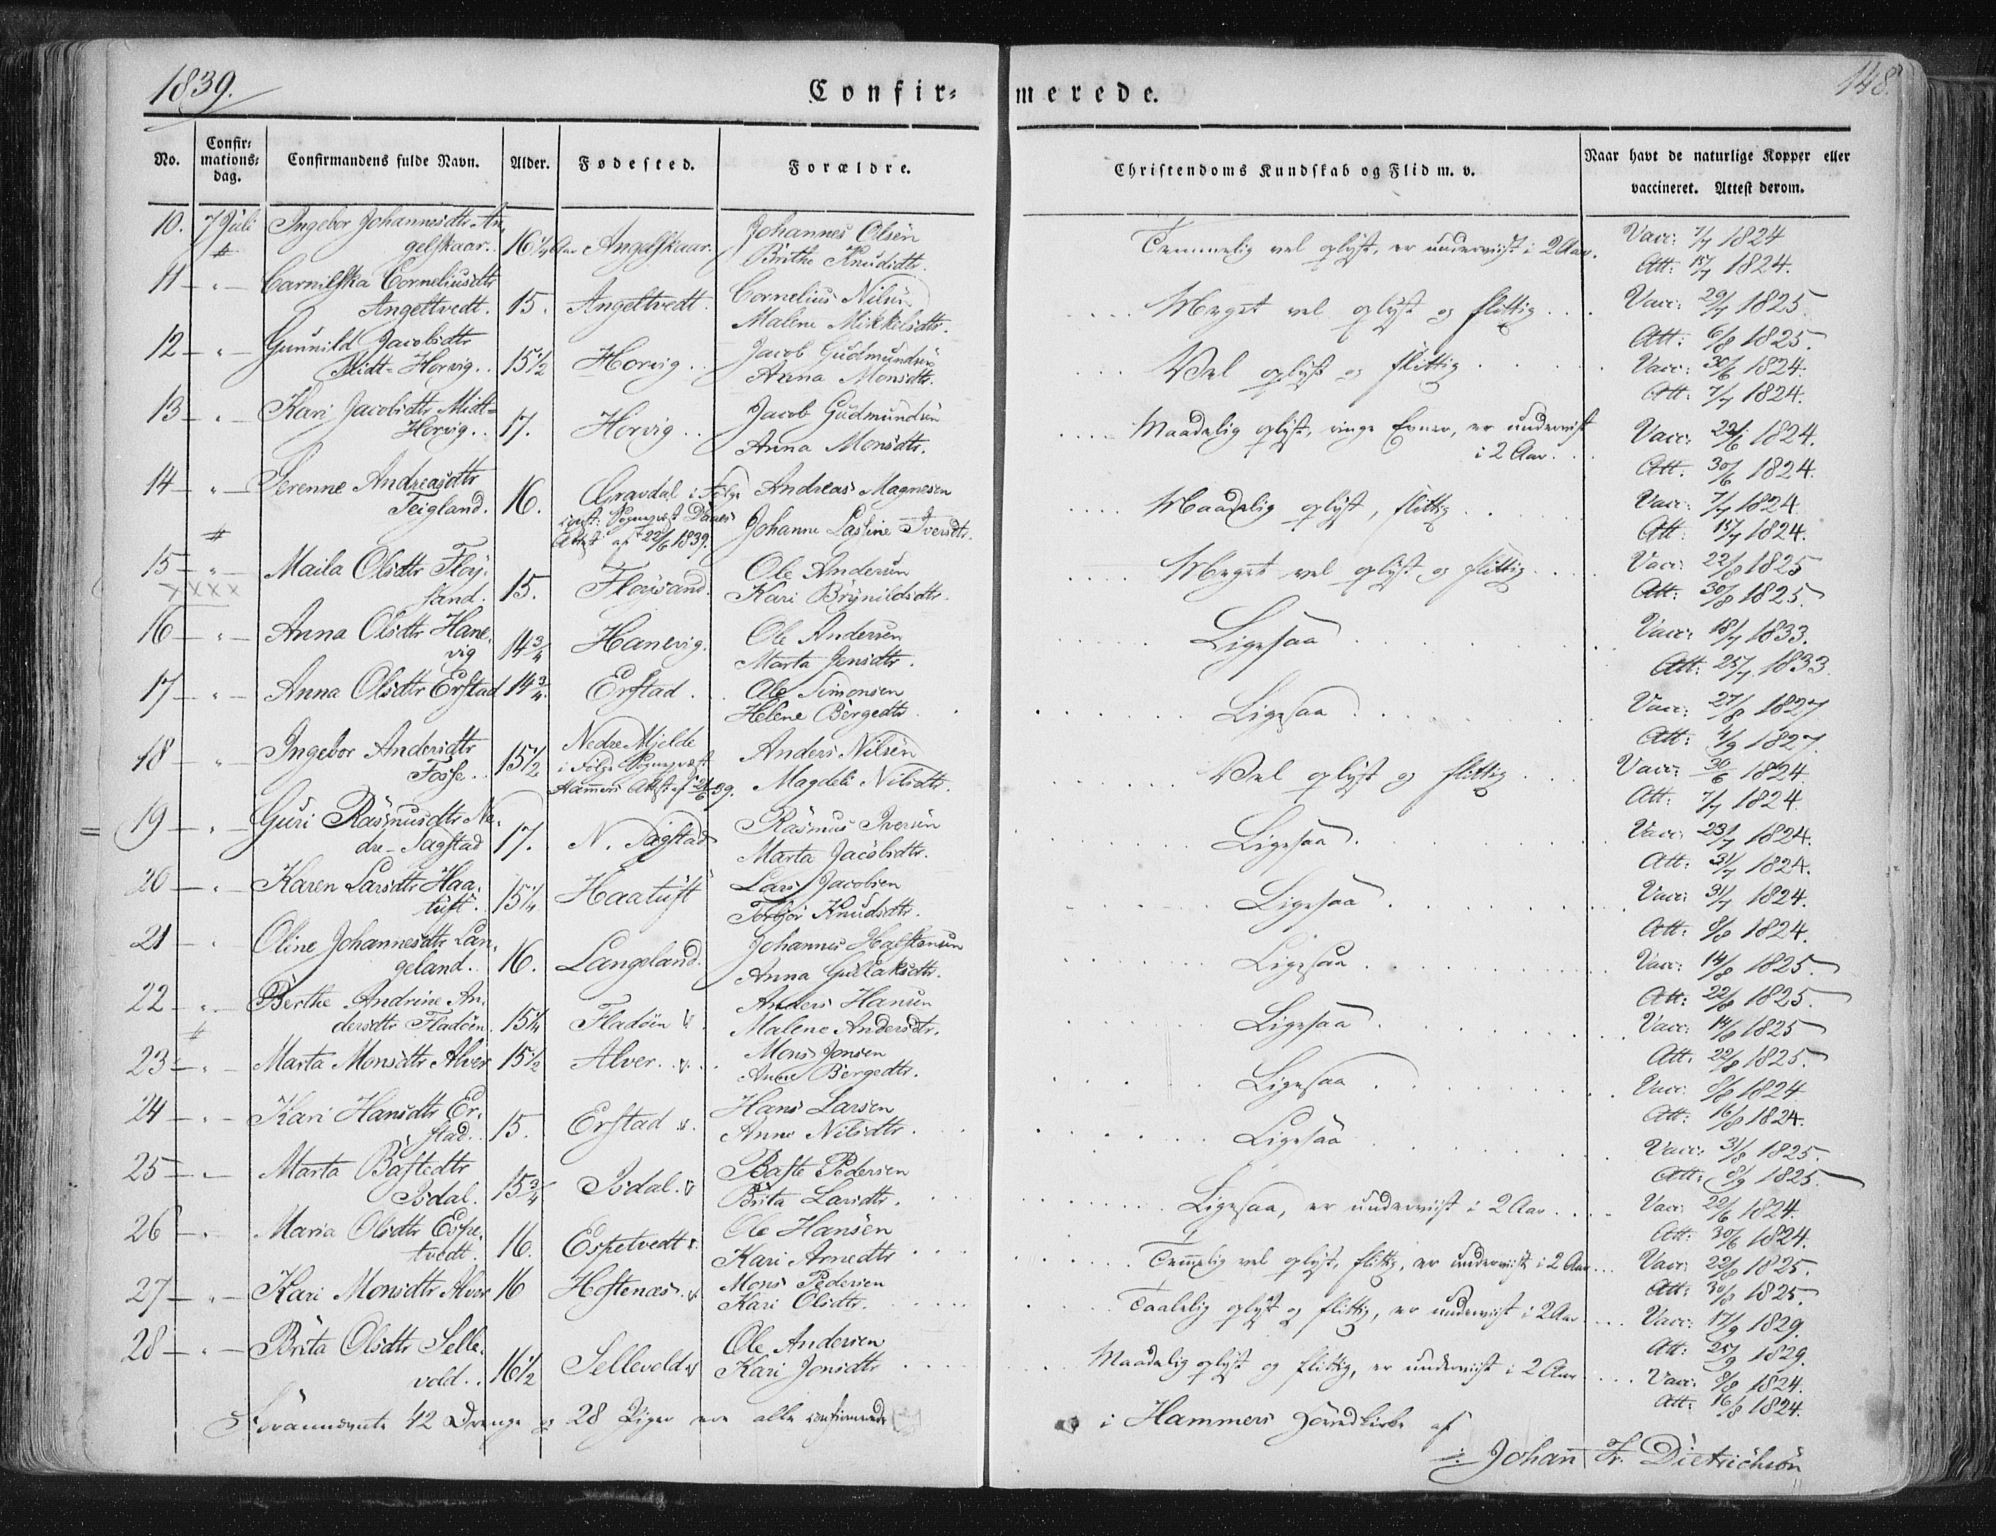 1839.
148.
Confir= merede.
No.
Confir=
mations=
dag.
Confirmandens fulde Navn.
Alder.
Fødested.
Forældre.
Christendoms Kundskab og Flid m. v.
Naar havt de naturlige Kopper eller
vaccineret. Attest derom.
10. 7 Juli Ingebor Johannesdtr An¬ Johannes Olsen Vacc: 7/7 1824
gelskaar. 16 1/4 Aar Angelskaar. Brithe Knudsdtr. Temmelig vel oplyst, er underviist i 2 Aar. Att: 15/7 1824.
11 — " — Carnilska Corneliusdtr Cornelius Nilsen Meget vel oplyst og flittig Vacc: 29/7 1825.
Angeltvedt. 15. Angeltvedt. Malene Mikkelsdtr. Att: 6/8 1825.
12 — " — Gunnild Jacobsdtr Jacob Gudmundsen Vel oplyst og flittig Vacc: 30/6 1824.
Midt-Horvig. 15 1/2 Horvig. Anna Monsdtr. Att: 7/7 1824.
13 — " — Kari Jacobsdtr Midt= Jacob Gudmundsen Maadelig oplyst, ringe Evner, er underviist
Horvig. 17. Horvig. Anna Monsdtr. i 2 Aar. Vacc: 22/6 1824.
Att: 30/6 1824.
14 — " — Serenne Andreasdtr Gravdal i Følge Andreas Magnesen Maadelig oplyst, flittig Vacc: 7/7 1824
Teigland. 16. const: Sognepræst Daaes Johanne Lassine Iversdtr. Att: 15/7 1824.
Attest af 22/6 1839.
15 — " — Maila Olsdtr Floj¬ Ole Andersen Meget vel oplyst og flittig Vacc: 22/8 1825
xxxx sand. 15. Floisand. Kari Brynildsdtr. Att: 30/8 1825.
16 — " — Anna Olsdtr Hane¬ Ole Andersen Ligesaa Vacc: 18/7 1833.
vig 14 3/4 Hanevig. Marta Jensdtr. Att: 25/7 1833.
17 — " — Anna Olsdtr Erstad 14 3/4. Erstad. Ole Simonsen Ligesaa Vacc: 27/8 1827
Helene Børgedtr Att: 4/9 1827.
18 — " — Ingebor Andersdtr Nedre Mjelde Anders Nilsen Vel oplyst og flittig Vacc: 30/6 1824
Fosse. 15 1/2 i Følge Sognepræst Magdeli Nilsdtr. Att: 7/7 1824.
Hammers Attest af 21/6 39.
19 — " — Guri Rasmusdtr Ne¬ Rasmus Iversen Ligesaa. Vacc: 23/7 1824.
dre-Tagstad 17. N. Tagstad Marta Jacobsdtr. Att: 31/7 1824.
20 — " — Karen Larsdtr Haa¬ Lars Jacobsen Ligesaa Vacc: 31/7 1824.
tuft. 15 1/4 Haatuft Torbjør Knudsdtr. Att: 8/8 1824.
21 — " Oline Johannesdtr Lan¬ Johannes Halstensen Ligesaa Vacc: 14/8 1825.
geland. 16. Langeland. Anna Gullaksdtr. Att: 22/8 1825.
22 — " — Berthe Andrine An¬ Anders Hansen Ligesaa Vacc: 14/8 1825
dersdtr Fladøen. 15 1/4 Fladøen Malene Andersdtr. Att: 22/8 1825.
23 — " — Marta Monsdtr Alver 15 1/2 Alver. Mons Jonsen Ligesaa Vacc: 8/8 1824
Anne Børgedtr. Att: 16/8 1824.
24 — " — Kari Hansdtr Er¬ Hans Larsen Ligesaa Vacc: 31/8 1825.
stad. 15. Erstad Anne Nilsdtr. Att: 8/9 1825.
25 — " — Marta Bastedtr Baste Pedersen Ligesaa, er underviist i 2 Aar. Vacc: 22/6 1824.
Isdal. 15 3/4 Isdal. Brita Larsdtr. Att: 30/6 1824.
26 — " — Maria Olsdtr Espe¬ Ole Hansen Temmelig vel oplyst, flittig, er underviist i 2 Aar Vacc: 22/8 1825.
tvedt. 16. Espetvedt. Kari Arnedtr Att: 30/8 1825.
27 — " — Kari Monsdtr Alver 16 Hoftenæs. Mons Pedersen Taalelig oplyst og flittig, er underviist i 2 Aar Vacc: 17/9 1829.
Kari Olsdtr. Att: 25/9 1829.
28 — " — Brita Olsdtr Selle¬ Ole Andersen Maadelig oplyst og flittig, er underviist i 2 Aar Vacc: 8/8 1824.
vold. 16 1/2 Sellevold Kari Jonsdtr Att: 16/8 1824.
Foranævnte 42 Drenge og 28 Piger ere alle confirmerede i Hammers Hovedkirke af
Johan Fr. Dietrichson